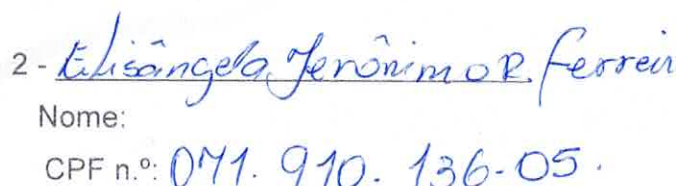 2 - Elisângela Jerônimo R. Ferreir
Nome:
CPF n.º: 071. 910. 136-05.